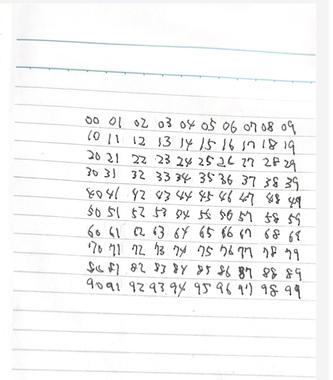 00 01 02 03 04 05 06 07 08 09
10 11 12 13 14 15 16 17 18 19
20 21 22 23 24 25 26 27 28 29
30 31 32 33 34 35 36 37 38 39
40 41 42 43 44 45 46 47 48 49
50 51 52 53 54 55 56 57 58 59
60 61 62 63 64 65 66 67 68 69
70 71 72 73 74 75 76 77 78 79
80 81 82 83 84 85 86 87 88 89
90 91 92 93 94 95 96 97 98 99